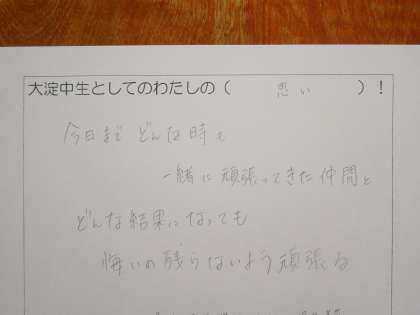 大淀中生としてのわたしの（　思い　）！
今日まで どんな時も
一緒に頑張ってきた仲間と
どんな結果になっても
悔いの残らないよう頑張る